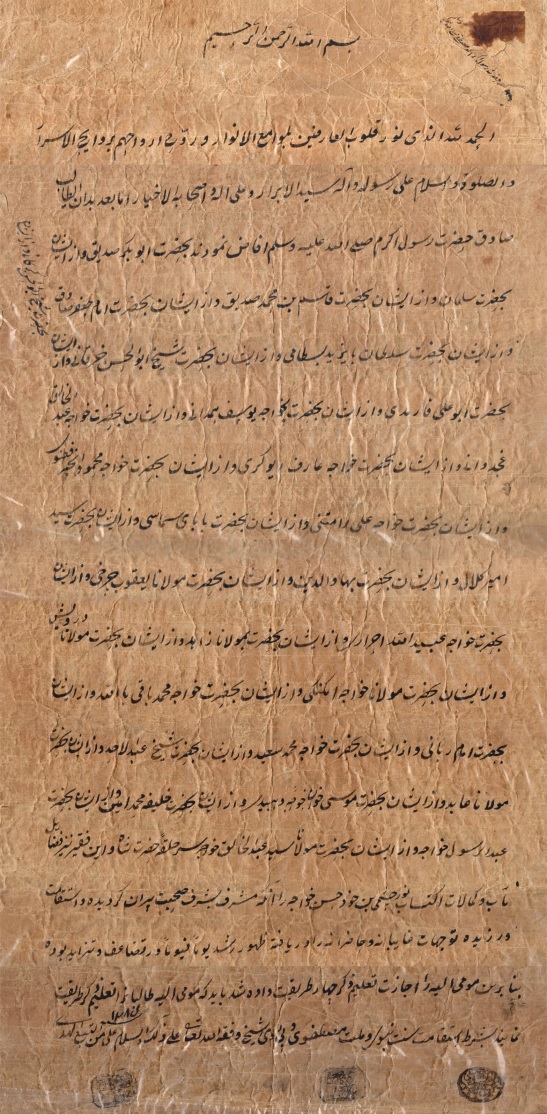 بسم الله الرحمن الرحیم
الحمد لله الذی نور قلوب العارفین بلوامع الانوار و روّح ارواحهم بروایح الاسرار
والصلوة والسلام علی رسوله وآله سید الابرار وعلی آله واصحابه الاخیار اما بعد بدان ای طالب
صادق حضرت رسول اکرم صلی الله علیه وسلم افاض نمودند بحضرت ابوبکر صدیق واز ایشان
بحضرت سلمان واز ایشان بحضرت قاسم بن محمد صدیق واز ایشان بحضرت امام جعفر صادق
واز ایشان بحضرت سلطان بایزید بسطامی واز ایشان بحضرت شیخ ابو الحسن خرقانی واز
بحضرت ابو علی فارمدی واز ایشان بحضرت خواجه یوسف همدانی واز ایشان بحضرت خواجه عبد الخالق
غجدوانی واز ایشان بحضرت خواجه عارف ریوکری واز ایشان بحضرت خواجه محمود انجیر فغنوی
واز ایشان بحضرت خواجه علی رامتنی واز ایشان بحضرت بابای سماسی واز ایشان بحضرت سید
امیر کلال واز ایشان بحضرت بهاء والدین واز ایشان بحضرت مولانا یعقوب چرخی واز ایشان
بحضرت خواجه عبید الله احرار واز ایشان بحضرت مولانا زاهد واز ایشان بحضرت مولانا درویش
واز ایشان بحضرت مولانا خواجه امکنکی واز ایشان بحضرت خواجه محمد باقی بالله واز ایشان
بحضرت امام ربانی واز ایشان بحضرت خواجه محمد سعید واز ایشان بحضرت شیخ عبد الاحد واز ایشان بحضرت
مولانا عابد واز ایشان بحضرت موسی خان خواجه دهبیدی واز ایشان بحضرت خلیفه محمد امین واز ایشان بحضرت
عبد الرسول خواجه واز ایشان بحضرت مولانا سید عبد الخالق خواجه حضرت شاه واین فقیر نیز فضایل
وکمالات اکتساب خواجه را آنکه مشرف بشرف صحبت پیران کردیده واستقامت
ورزیده توجهات غایبانه وحاضرانه را دریافته ظهور رشد یوما فیوما ودر تضاعف وتزاید بوده
بنا برین مومی الیه را اجازت تعلیم ذکر چهار طریقت داده شد باید که مومی الیه طالبانرا تعلیم ذکر طریقت
نماید بشرط استقامت سنت نبوی وملت مصطفوی شیخ وفقه الله تعالی علی ذلک والسلام علی من اتبع الهدی